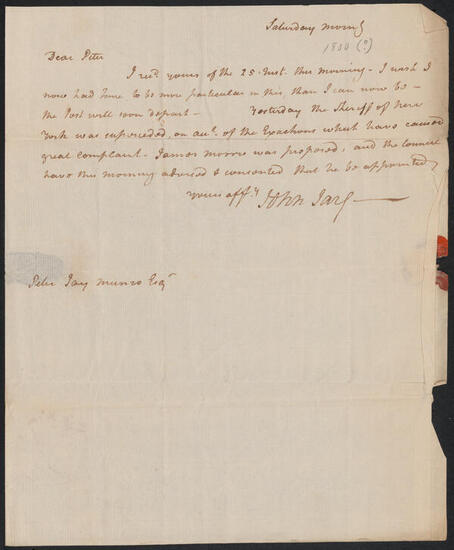 Saturday Morng
1800 (?)
Dear Peter
I recd. yours of the 25. Inst. this morning - I wish I
now had time to be more particular in this, than I can now be -
the Post will soon depart - Yesterday the Sheriff of New
York was superseded, on acct. of the Exactions which have caused
great complaint - James Morris was proposed, and the Council
have this morning advised & consented that he be appointed
yours affy.
John Jay
Peter Jay Munro Esqr